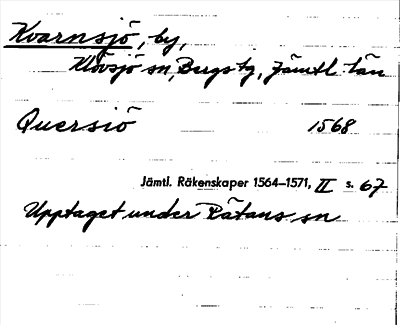 Kvarnsjö, by,
Klövsjö sn, Bergs tg, Jämtl. län
Quersiö 1568
Jämtl. Räkenskaper 1564–1571, II s. 67
Upptaget under Rätans sn